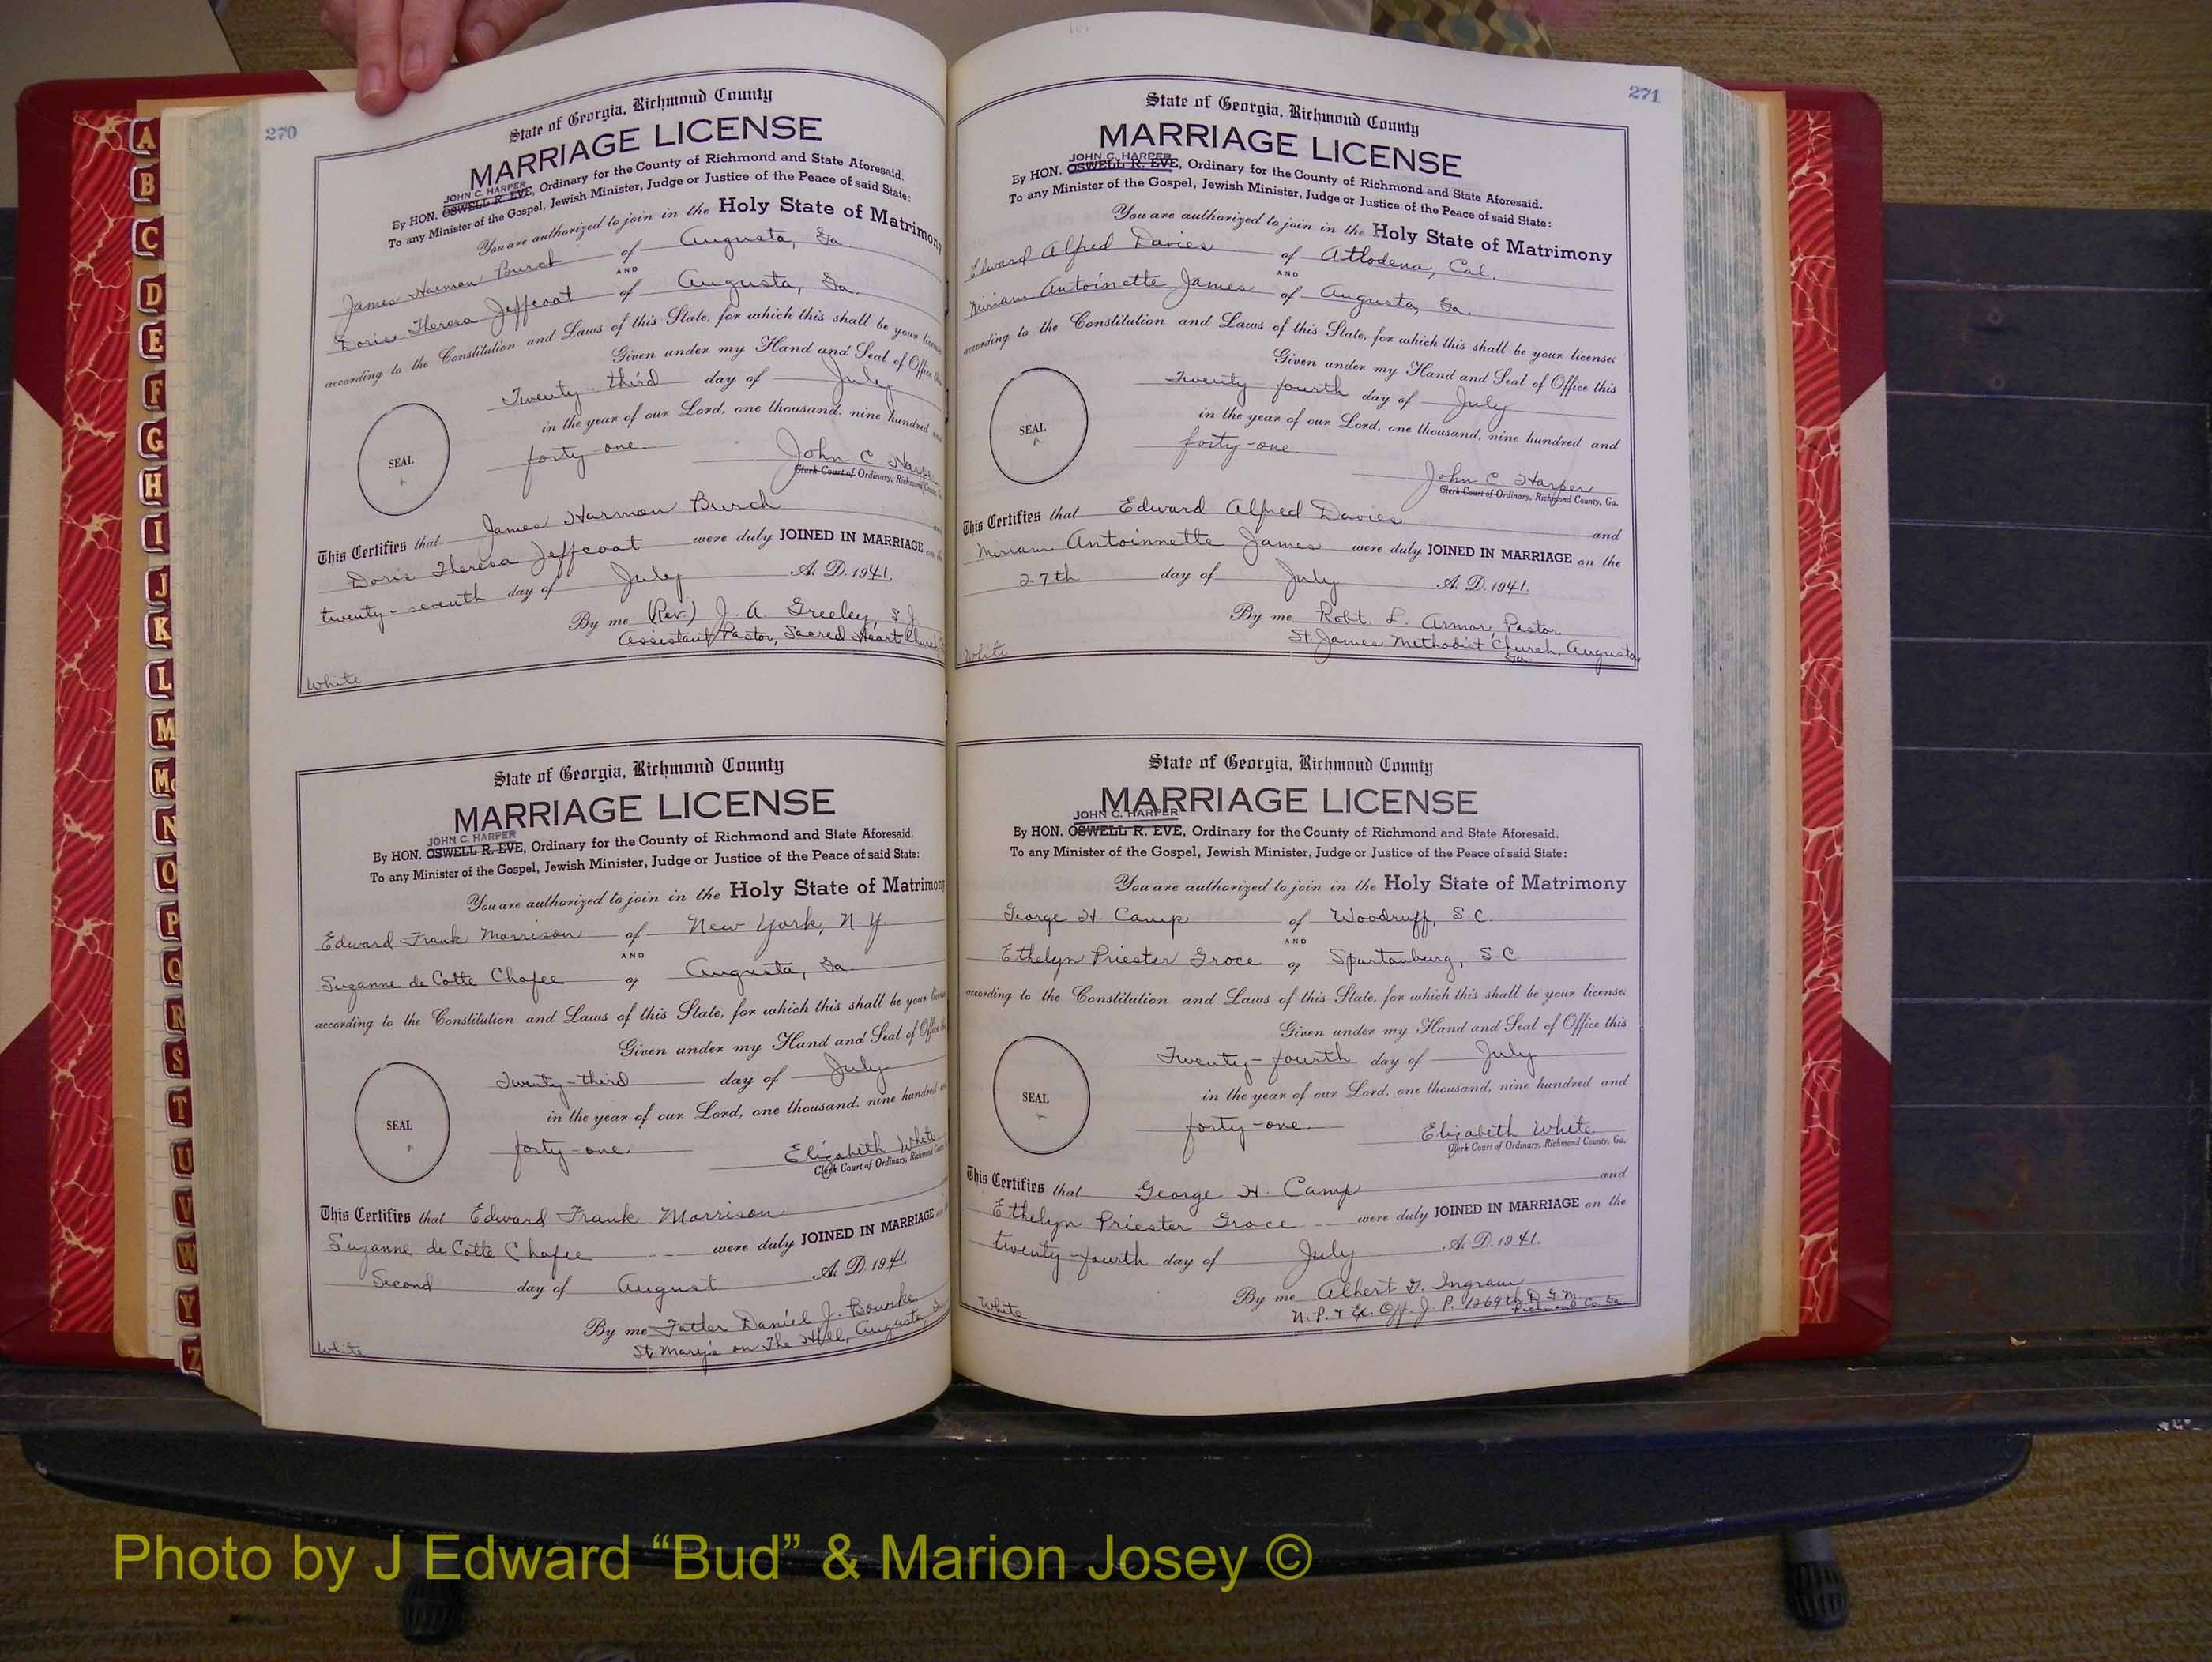 270
State of Georgia, Richmond County
MARRIAGE LICENSE
JOHN C. HARPER
By HON. OSWELL R. EVE, Ordinary for the County of Richmond and State Aforesaid.
To any Minister of the Gospel, Jewish Minister, Judge or Justice of the Peace of said State:
You are authorized to join in the Holy State of Matrimony
James Harmon Burch of Augusta, Ga.
AND
Doris Theresa Jeffcoat of Augusta, Ga.
according to the Constitution and Laws of this State, for which this shall be your license
Given under my Hand and Seal of Office
Twenty-third day of July
in the year of our Lord, one thousand, nine hundred
forty one
SEAL
John C. Harper
Clerk Court of Ordinary, Richmond
This Certifies that James Harmon Burch
Doris Theresa Jeffcoat were duly JOINED IN MARRIAGE on
twenty-seventh day of July A. D. 1941.
By me (Rev.) J. A. Greeley, S. J.
Assistant Pastor, Sacred Heart Church
White
State of Georgia, Richmond County
MARRIAGE LICENSE
JOHN C. HARPER
By HON. OSWELL R. EVE, Ordinary for the County of Richmond and State Aforesaid.
To any Minister of the Gospel, Jewish Minister, Judge or Justice of the Peace of said State:
You are authorized to join in the Holy State of Matrimony
Edward Frank Morrison of New York, N.Y.
AND
Suzanne de Cotte Chafee of Augusta, Ga.
according to the Constitution and Laws of this State, for which this shall be your license
Given under my Hand and Seal of Office
Twenty-third day of July
in the year of our Lord, one thousand, nine hundred
forty-one.
SEAL
Elizabeth White
Clerk Court of Ordinary, Richmond
This Certifies that Edward Frank Morrison
Suzanne de Cotte Chafee were duly JOINED IN MARRIAGE
Second day of August A. D. 1941.
By me Father Daniel J. Bourke
St. Mary's on The Hill, Augusta, Ga
White
271
State of Georgia, Richmond County
MARRIAGE LICENSE
JOHN C. HARPER
By HON. OSWELL R. EVE, Ordinary for the County of Richmond and State Aforesaid.
To any Minister of the Gospel, Jewish Minister, Judge or Justice of the Peace of said State:
You are authorized to join in the Holy State of Matrimony
Edward Alfred Davies of Altodena, Cal.
AND
Miriam Antoinette James of Augusta, Ga.
according to the Constitution and Laws of this State, for which this shall be your license.
Given under my Hand and Seal of Office this
Twenty fourth day of July
in the year of our Lord, one thousand, nine hundred and
forty-one.
SEAL
John C. Harper
Clerk Court of Ordinary, Richmond County, Ga.
This Certifies that Edward Alfred Davies and
Miriam Antoinnette James were duly JOINED IN MARRIAGE on the
27th day of July A. D. 1941.
By me Robt. L. Armor, Pastor
St. James Methodist Church, Augusta,
Ga.
White
State of Georgia, Richmond County
MARRIAGE LICENSE
JOHN C. HARPER
By HON. OSWELL R. EVE, Ordinary for the County of Richmond and State Aforesaid.
To any Minister of the Gospel, Jewish Minister, Judge or Justice of the Peace of said State:
You are authorized to join in the Holy State of Matrimony
George H. Camp of Woodruff, S.C.
AND
Ethelyn Priester Groce of Spartanburg, S.C
according to the Constitution and Laws of this State, for which this shall be your license.
Given under my Hand and Seal of Office this
Twenty-fourth day of July
in the year of our Lord, one thousand, nine hundred and
forty-one.
SEAL
Elizabeth White
Clerk Court of Ordinary, Richmond County, Ga.
This Certifies that George H. Camp and
Ethelyn Priester Groce were duly JOINED IN MARRIAGE on the
twenty-fourth day of July A. D. 1941.
By me Albert G. Ingram
N. P. & Ex. Off. J. P. 1269th D. G. M.
Richmond Co. Ga.
White
A
B
C
D
E
F
G
H
I
J
K
L
M
Mc
N
O
P
Q
R
S
T
U
V
W
Y
Z
Photo by J Edward “Bud” & Marion Josey ©